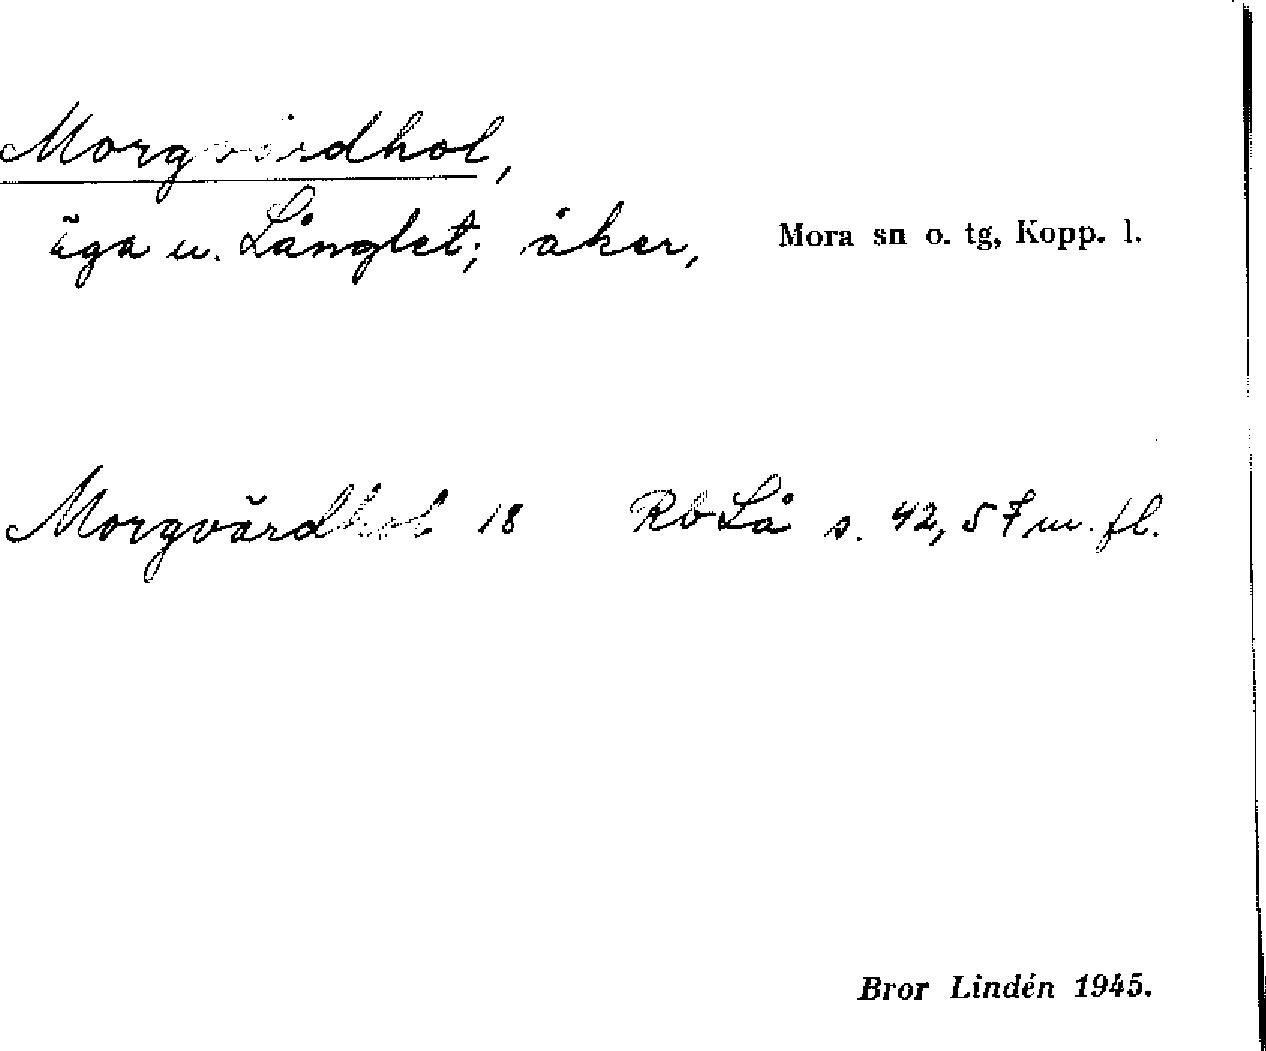 Morgvårdhol,
äga u. Långlet; åker, Mora sn o. tg, Kopp. l.
Morgvårdhol 18 Rb Lå s. 42, 57 m. fl.
Bror Lindén 1945.